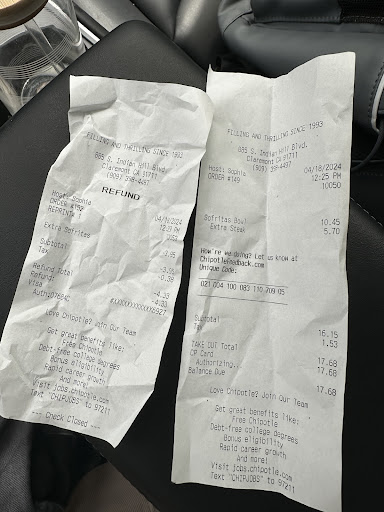 FILLING AND THRILLING SINCE 1993
885 S. Indian Hill Blvd.
Claremont CA 91711
(909) 398-4497
REFUND
Host: Sophie
04/18/2024
REPRINT#
Extra Sofritas
-3.95
Subtotal
Tax
Refund Total
Refund:
Visa
-4.33
Love Chipotle? Join Our Team
Get great benefits like:
Free Chipotle
Debt-free college degrees
Bonus eligibility
Rapid career growth
And more!
Visit jobs.chipotle.com
Text "CHIPJOBS" to 97211
--- Check Closed ---
FILLING AND THRILLING SINCE 1993
885 S. Indian Hill Blvd.
Claremont CA 91711
(909) 398-4497
Host: Sophie 04/18/2024
ORDER #149 12:25 PM
10050
Sofritas Bowl 10.45
Extra Steak 5.70
How're we doing? Let us know at
Chipotlefeedback.com
Unique Code:
021 004 100 083 110 709 05
Subtotal 16.15
Tax 1.53
TAKE OUT Total 17.68
CR Card
Authorizing.. 17.68
Balance Due 17.68
Love Chipotle? Join Our Team
Get great benefits like:
Free Chipotle
Debt-free college degrees
Bonus eligibility
Rapid career growth
And more!
Visit jobs.chipotle.com
Text "CHIPJOBS" to 97211